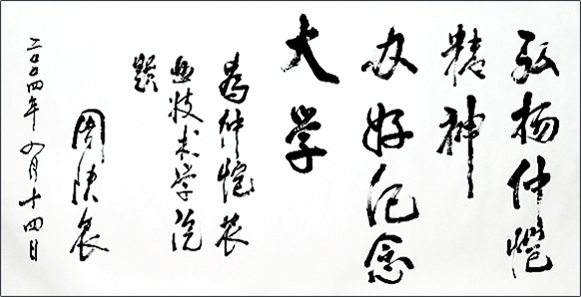 弘扬仲愷
精神
办好纪念
大学
为仲恺农
业技术学院
题
周铁农
二〇〇四年九月十四日